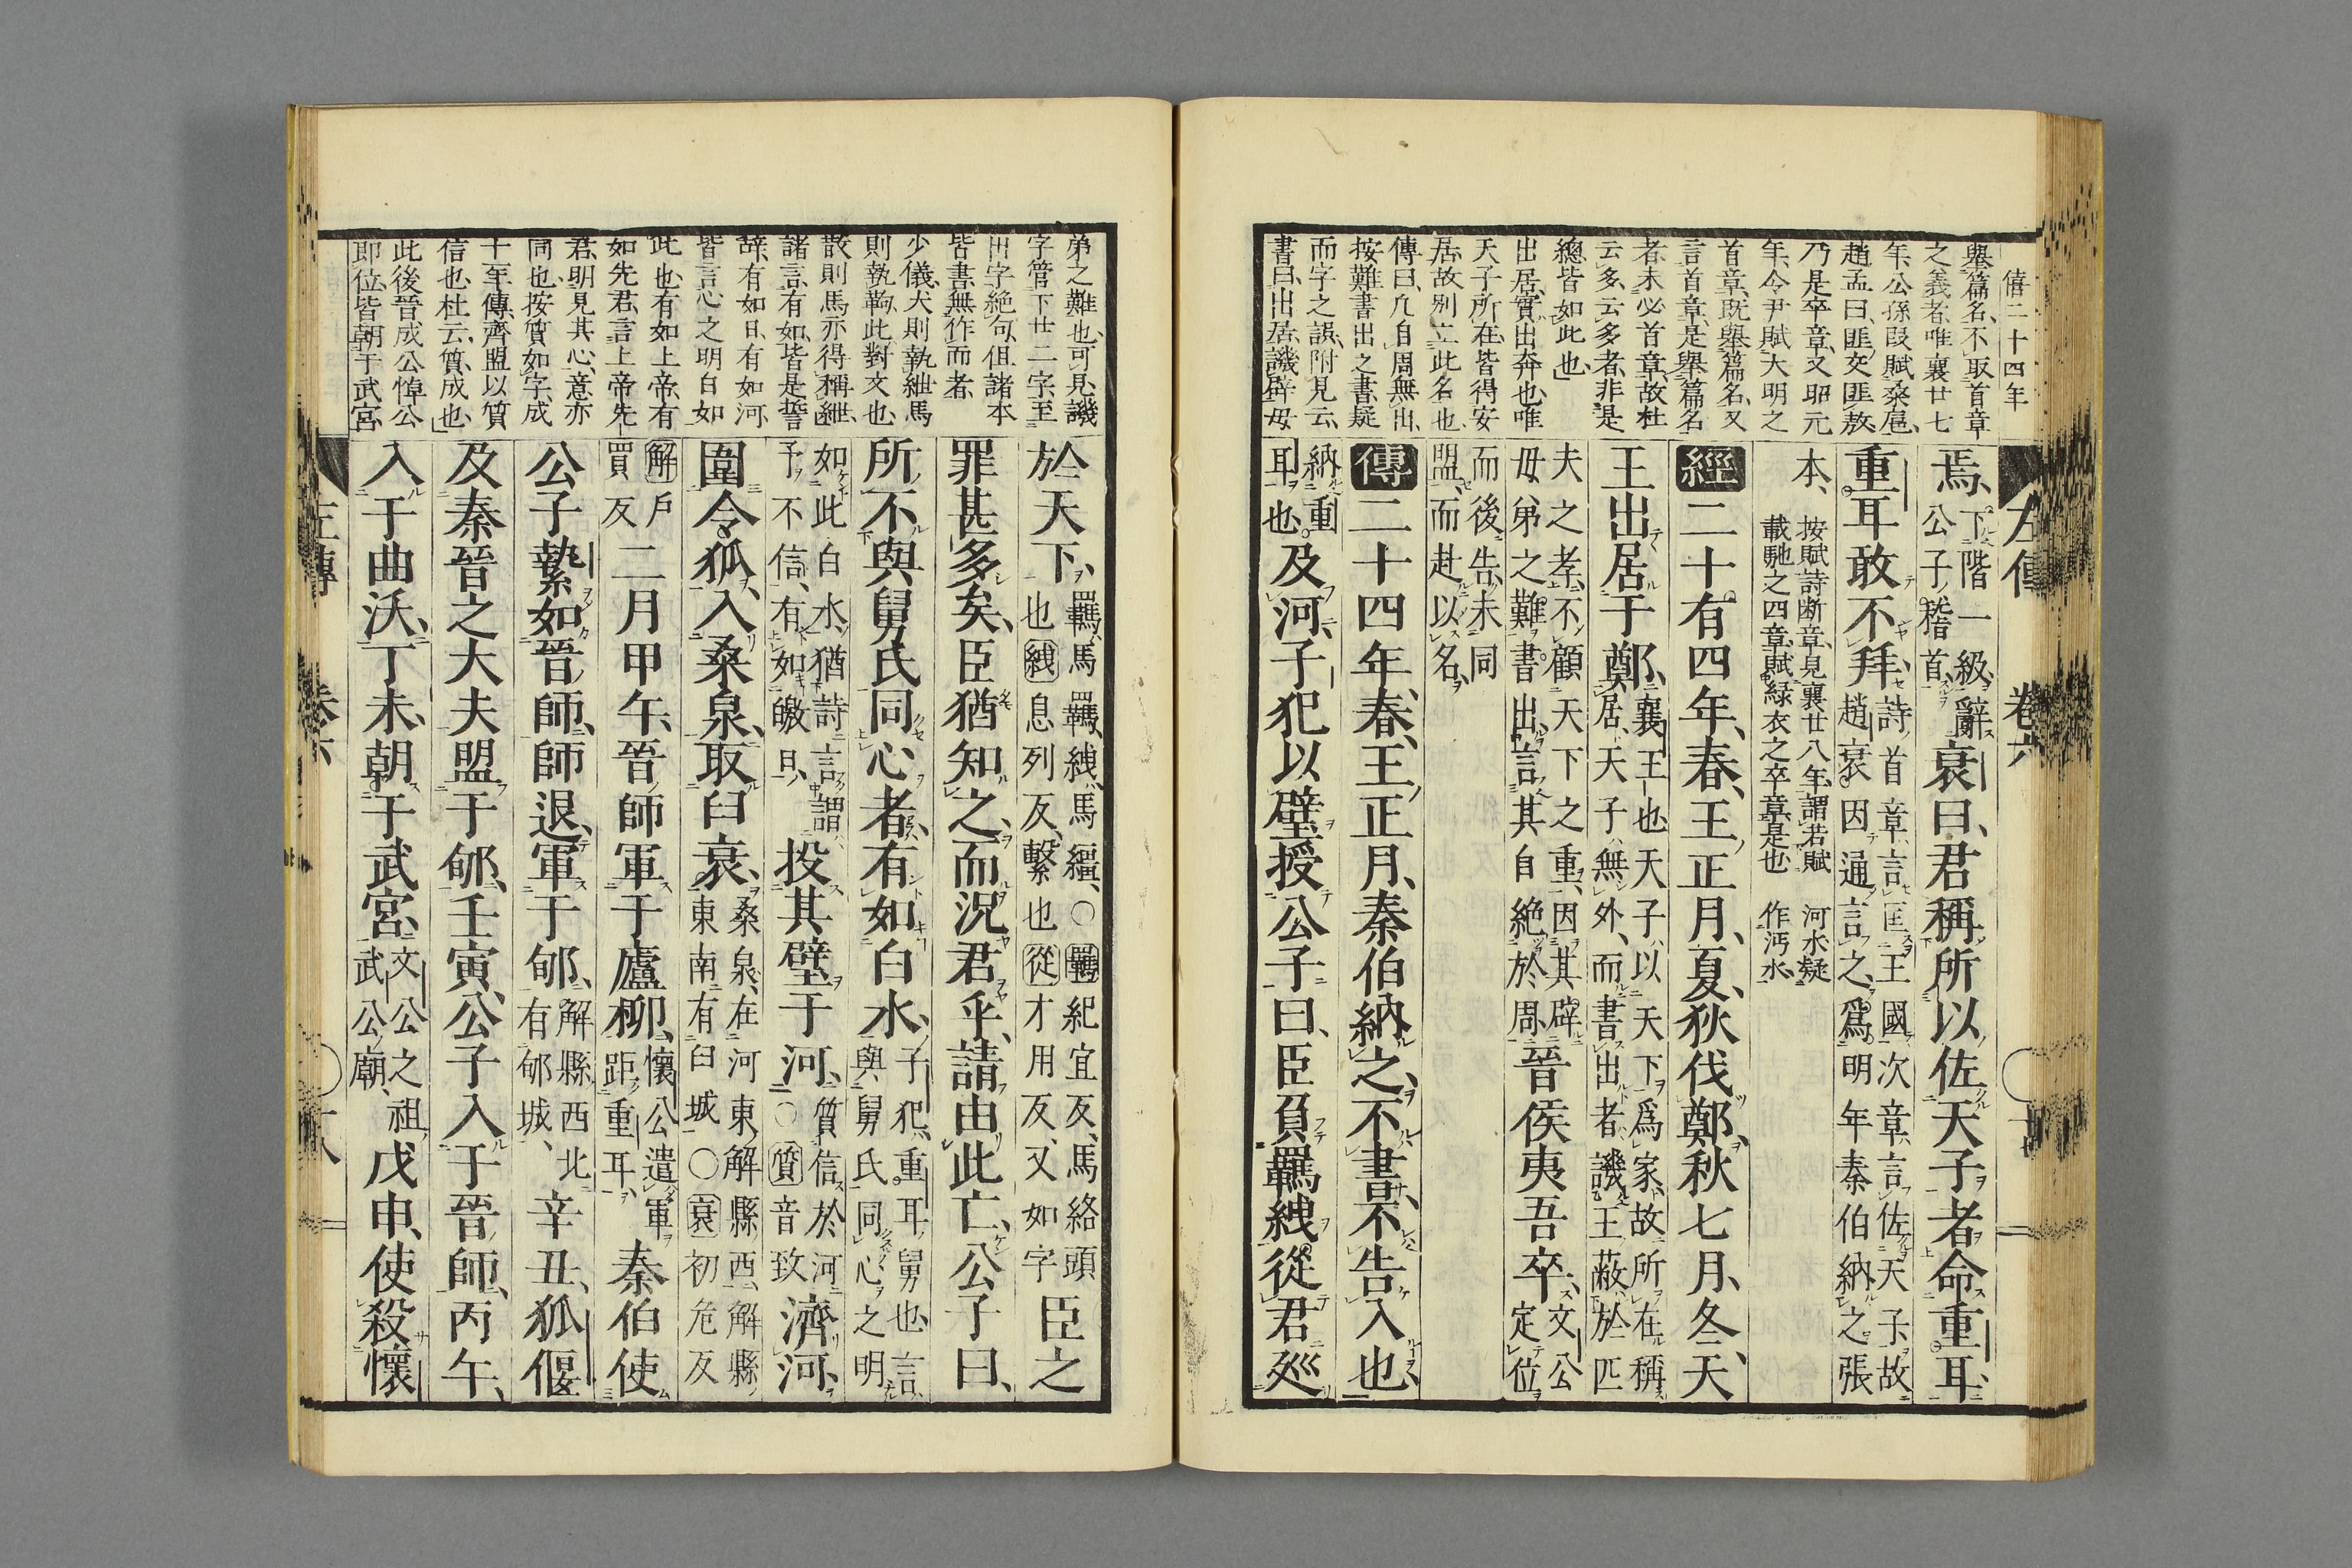 僖二十四年
舉篇名、不取首章
之義者、唯襄廿七
年、公孫段賦桑扈、
趙孟曰、匪交匪敖、
乃是卒章、又昭元
年、令尹賦大明之
首章、既舉篇名、又
言首章、是舉篇名
者、未必首章、故杜
云多、云多者、非是
總皆如此也、
出居、實出奔也、唯
天子所在、皆得安
居、故別立此名也、
傳曰、凡自周無出、
按難書出之書、疑
而字之誤、附見云、
書曰、出居、譏辟母
左傳 卷六
焉、下階一級、辭公子、稽首、衰曰、君稱所以佐天子者命重耳、
重耳敢不拜、詩首章、言匡王國、次章、言佐天子、故趙衰因通言之、爲明年秦伯納之張
本、按賦詩断章、見襄廿八年、謂若賦載馳之四章、賦緑衣之卒章、是也 河水疑作沔水、
經二十有四年、春、王正月、夏、狄伐鄭、秋七月、冬、天
王出居于鄭、襄王也、天子以天下爲家、故所在稱居、天子無外、而書出者、譏王蔽於匹
夫之孝、不顧天下之重、因其辟母弟之難、書出、言其自絶於周、晉侯夷吾卒、文公定位
而後告、未同盟、而赴以名、
傳二十四年、春、王正月、秦伯納之、不書、不告入也、
納重耳也、及河、子犯以璧授公子曰、臣負羈紲從君廵
弟之難也、可見、譏
字管下廿二字、至
出字絶句、但諸本
皆書、無作而者、
少儀、犬則執紲、馬
則執靮、此對文也、
散則馬亦得稱紲、
諸言有如、皆是誓
辭、有如日、有如河、
皆言心之明白如
此也、有如上帝、有
如先君、言上帝先
君、明見其心、意亦
同也、按質如字、成
十一年傳、齊盟以質
信也、杜云、質、成也、
此後晉成公悼公、
即位、皆朝于武宮、
於天下、羈、馬羈、紲、馬繮、○羈紀宜反、馬絡頭也紲息列反、繫也從才用反、又如字臣之
罪甚多矣、臣猶知之、而況君乎、請由此亡、公子曰、
所不與舅氏同心者、有如白水、子犯、重耳舅也、言與舅氏同心之明
如此白水、猶詩言謂予不信、有如皦日、投其璧于河、質信於河○質音致濟河、
圍令狐、入桑泉、取臼衰、桑泉、在河東、解縣西、解縣東南有臼城○衰初危反
解戶買反二月甲午、晉師軍于廬柳、懷公遣軍距重耳、秦伯使
公子縶如晉師、師退、軍于郇、解縣西北有郇城、辛丑、狐偃
及秦晉之大夫盟于郇、壬寅、公子入于晉師、丙午、
入于曲沃、丁未、朝于武宮、文公之祖武公廟、戊申、使殺懷
左傳 卷六